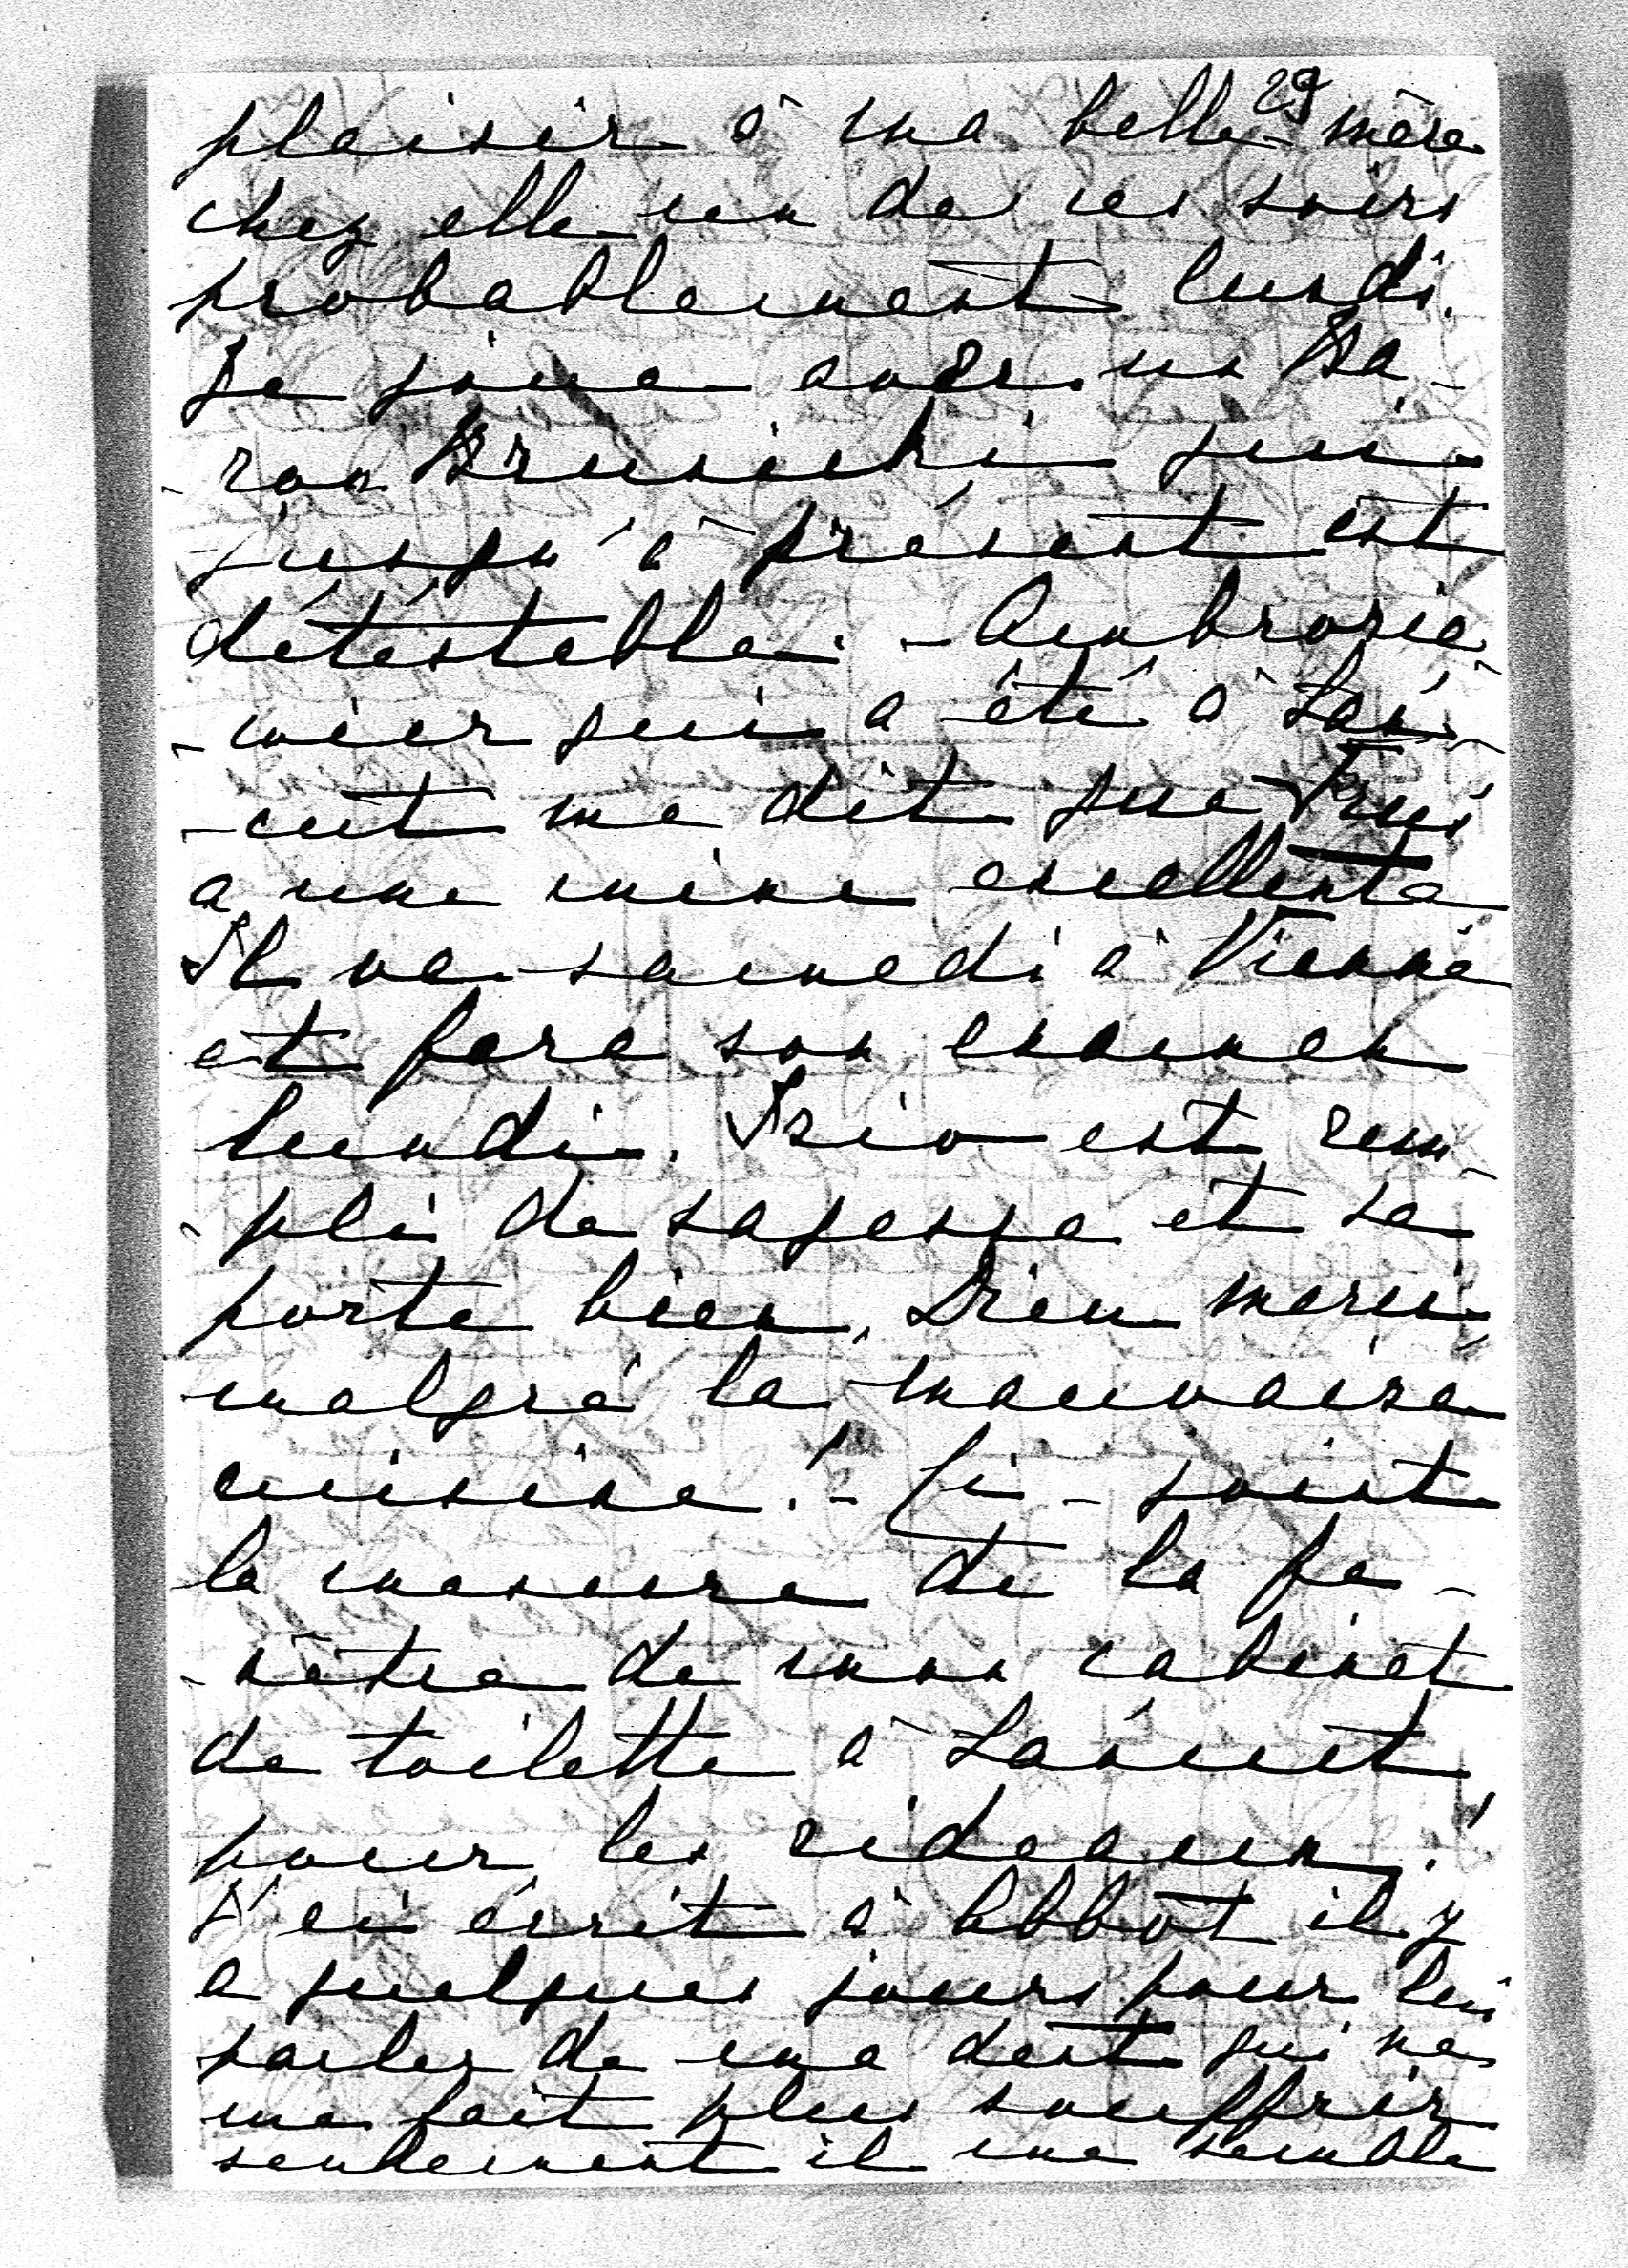 29
plaisir à ma belle-mère
chez elle un de ces soirs
probablement lundi.
Je joue avec un Ba-
-ron Brusicki qui
jusqu'à présent est
détéstable. - Ambrosie
-wier qui a été à Lań-
-cut me dit que
a une mine excellente
Il va samedi à Vienne
et fera son examen
lundi. est rem-
-pli de sagesse et se
porte bien, Dieu merci
malgré la mauvaise
cuisine! - Ci-joint
la mesure de la fe-
-nêtre de mon cabinet
de toilette à Łańcut
pour les rideaux!
J'ai écrit à Abbot il y
a quelques jours pour lui
parler de ma dent qui ne
me fait plus souffrir
seulement il me semble